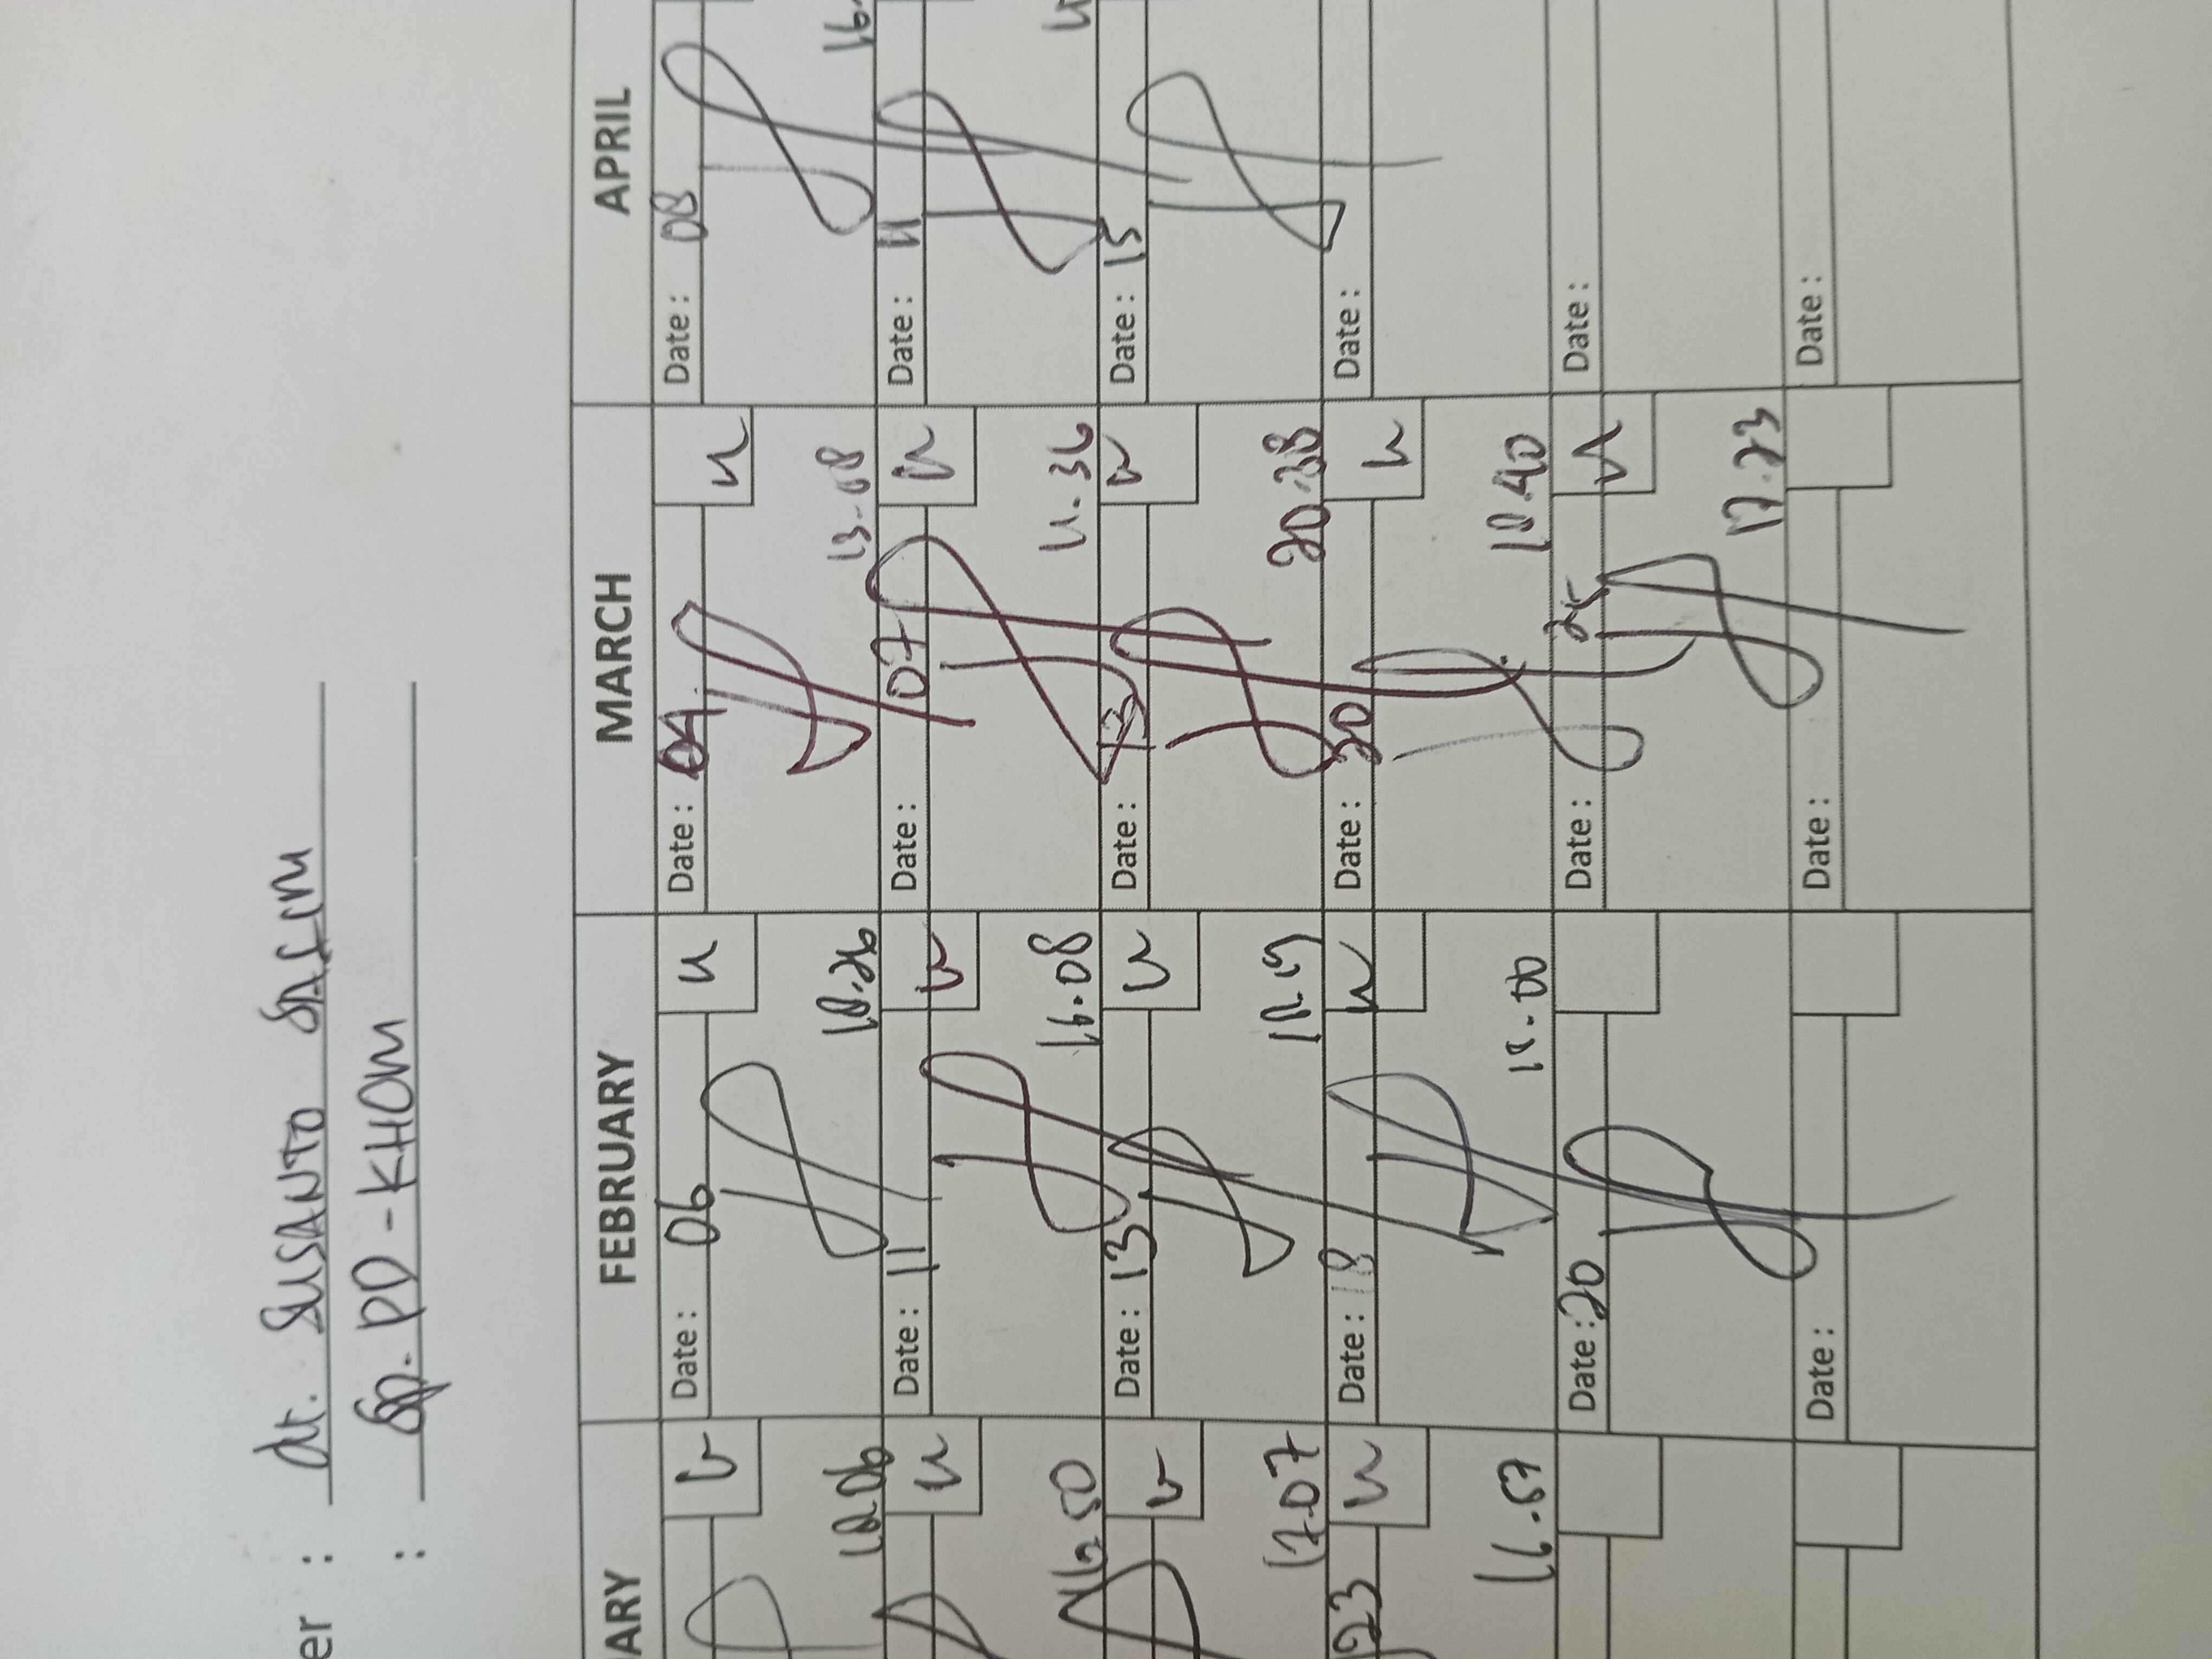 er : dr. SUSANTO SALIM
: Sp. PD - KHOM
ARY FEBRUARY MARCH APRIL
Date : 06 Date : 04 Date : 08
18.06 18.26 13.08 16.
Date : 11 Date : 07 Date : 11
16.50 16.08 11.36
Date : 13 Date : 13 Date : 15
17.07 18.19 20.38
23 Date : 18 Date : 20 Date :
16.57 18.00 18.40
Date : 20 Date : 25 Date :
17.23
Date : Date : Date :